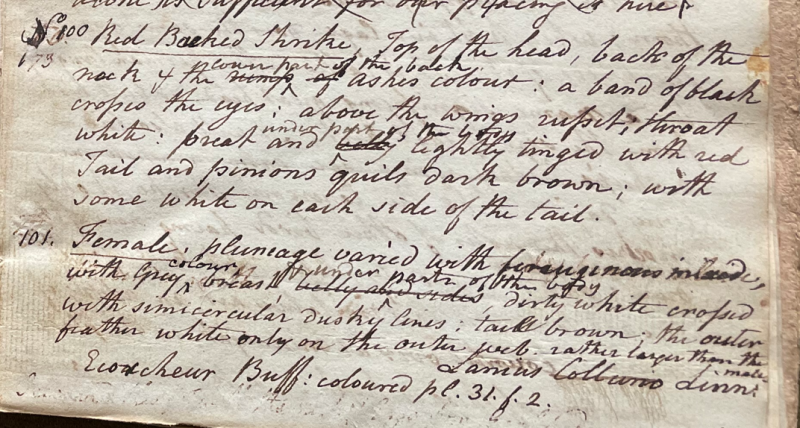 alone is sufficient for our placing is here
No. 100 Red Backed Shrike, Top of the head, back of the
173 lower part of the back
neck & the rump of ashes colour: a band of black
crosses the eyes; above the wings russet; throat
under part of the body
white: breast and belly lightly tinged with red
Tail and pinions quils dark brown; with
some white on each side of the tail.
101. Female. plumeage varied with feruiginous
colour under parts of the body
with Grey breast belly and sides dirty white crossed
with simicircular dusky lines: tail brown; the outer
feather white only on the outer web. rather larger than the male
Lanius Collurio Linn:
Ecorcheur Buff: coloured pl. 31. f. 2.